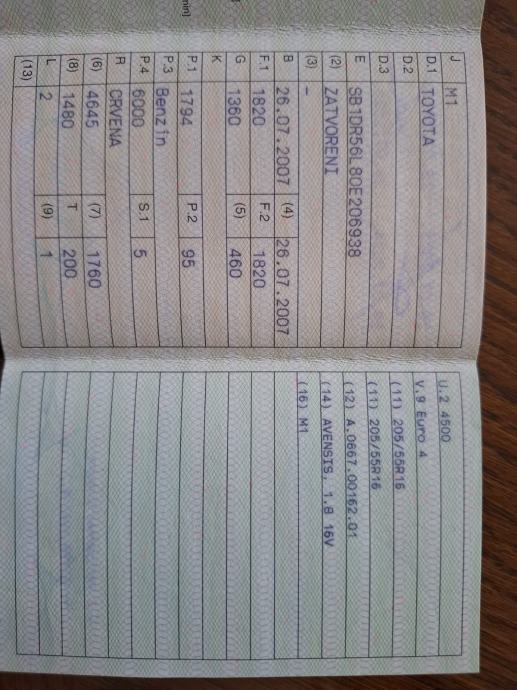 J M1
D.1 TOYOTA
D.2
D.3
E SB1DR56L80E206938
(2) ZATVORENI
(3) –
B 26.07.2007 (4) 26.07.2007
F.1 1820 F.2 1820
G 1360 (5) 460
K
P.1 1794 P.2 95
P.3 Benzin
P.4 6000 S.1 5
R CRVENA
(6) 4645 (7) 1760
(8) 1480 T 200
L 2 (9) 1
(13)
U.2 4500
V.9 Euro 4
(11) 205/55R16
(11) 205/55R16
(12) A.0667.00162.01
(14) AVENSIS, 1.8 16V
(16) M1